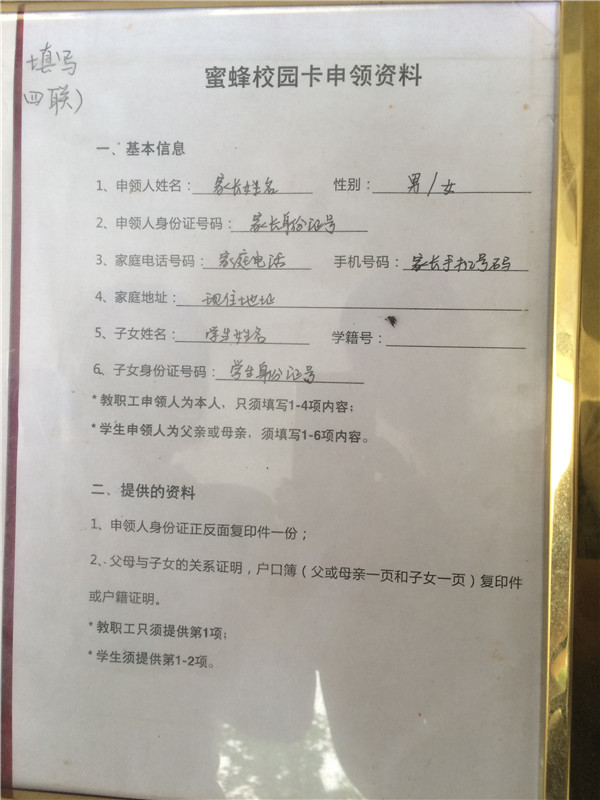 填写
四联）
蜜蜂校园卡申领资料
一、基本信息
1、申领人姓名：家长姓名 性别：男/女
2、申领人身份证号码：家长身份证号
3、家庭电话号码：家庭电话 手机号码：家长手机号码
4、家庭地址：现住地址
5、子女姓名：学生姓名 学籍号：
6、子女身份证号码：学生身份证号
*教职工申领人为本人，只须填写1-4项内容；
*学生申领人为父亲或母亲，须填写1-6项内容。
二、提供的资料
1、申领人身份证正反面复印件一份；
2、父母与子女的关系证明，户口簿（父或母亲一页和子女一页）复印件
或户籍证明。
*教职工只须提供第1项；
*学生须提供第1-2项。